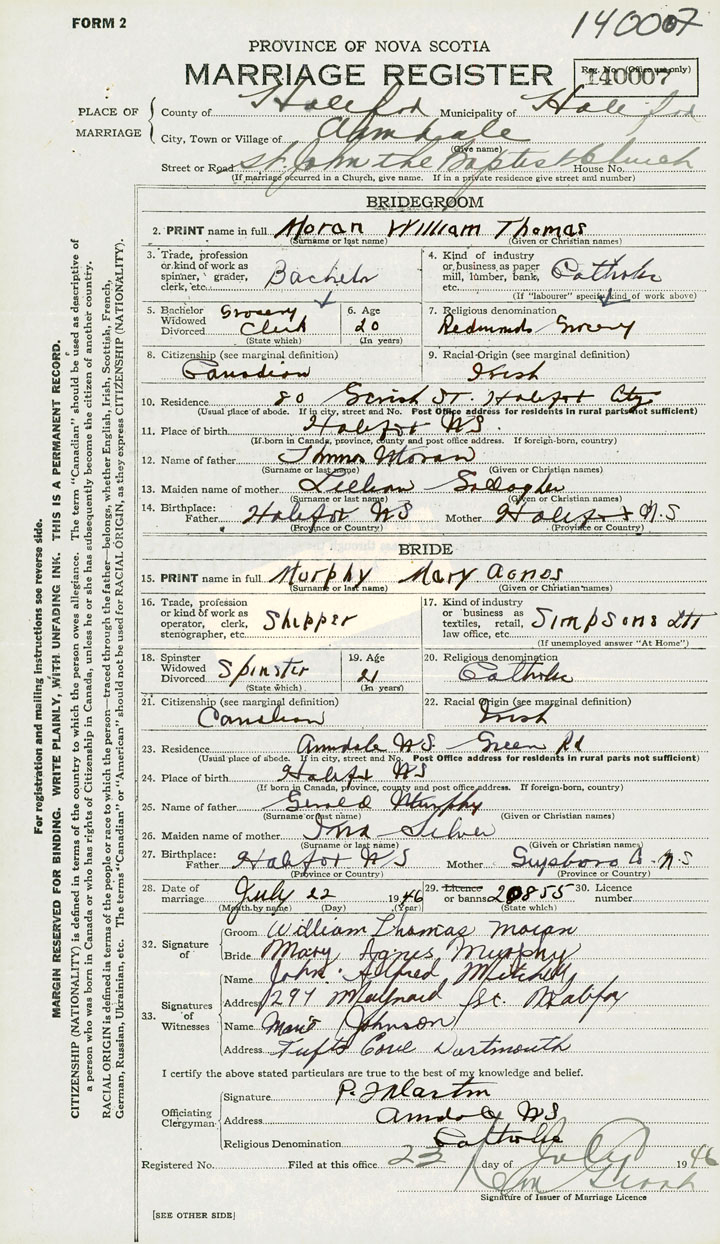 FORM 2
140007
PROVINCE OF NOVA SCOTIA
MARRIAGE REGISTER
Reg. No. (Office use only)
140007
PLACE OF MARRIAGE
County of Halifax Municipality of Halifax
City, Town or Village of Armdale
(Give name)
Street or Road St. John the Baptist Church House No.
(If marriage occurred in a Church, give name. If in a private residence give street and number)
BRIDEGROOM
2. PRINT name in full Moran William Thomas
(Surname or last name) (Given or Christian names)
3. Trade, profession or kind of work as spinner, grader, clerk, etc. Bachelor
4. Kind of industry or business, as paper mill, lumber, bank, etc. Catholic
(If "labourer" specify kind of work above)
5. Bachelor Widowed Divorced Grocery Clerk
(State which)
6. Age 20
(In years)
7. Religious denomination Redmonds Grocery
8. Citizenship (see marginal definition) Canadian
9. Racial Origin (see marginal definition) Irish
10. Residence 80 St. Halifax City
(Usual place of abode. If in city, street and No. Post Office address for residents in rural parts not sufficient)
11. Place of birth Halifax NS.
(If born in Canada, province, county and post office address. If foreign-born, country)
12. Name of father Moran
(Surname or last name) (Given or Christian names)
13. Maiden name of mother Lillian Gallagher
(Surname or last name) (Given or Christian names)
14. Birthplace: Father Halifax NS Mother Halifax N.S
(Province or Country) (Province or Country)
BRIDE
15. PRINT name in full Murphy Mary Agnes
(Surname or last name) (Given or Christian names)
16. Trade, profession or kind of work as operator, clerk, stenographer, etc. Shipper
17. Kind of industry or business as textiles, retail, law office, etc. Simpsons Ltd
(If unemployed answer "At Home")
18. Spinster Widowed Divorced Spinster
(State which)
19. Age 21
(In years)
20. Religious denomination Catholic
21. Citizenship (see marginal definition) Canadian
22. Racial Origin (see marginal definition) Irish
23. Residence Armdale NS. Green Rd
(Usual place of abode. If in city, street and No. Post Office address for residents in rural parts not sufficient)
24. Place of birth Halifax NS
(If born in Canada, province, county and post office address. If foreign-born, country)
25. Name of father Gerald Murphy
(Surname or last name) (Given or Christian names)
26. Maiden name of mother Silver
(Surname or last name) (Given or Christian names)
27. Birthplace: Father Halifax NS Mother Guysboro Co. N.S
(Province or Country) (Province or Country)
28. Date of marriage July 22 1946
(Month by name) (Day) (Year)
29. Licence or banns 20855
(State which)
30. Licence number
32. Signature of Groom William Thomas Moran
Bride Mary Agnes Murphy
33. Signatures of Witnesses
Name John Alfred Mitchell
Address 294 Maynard St. Halifax
Name Johnson
Address Tufts Cove Dartmouth
I certify the above stated particulars are true to the best of my knowledge and belief.
Officiating Clergyman
Signature P. Martin
Address Armdale NS
Religious Denomination Catholic
Registered No. Filed at this office 23 day of July 1946
Signature of Issuer of Marriage Licence
[SEE OTHER SIDE]
For registration and mailing instructions see reverse side.
MARGIN RESERVED FOR BINDING. WRITE PLAINLY, WITH UNFADING INK. THIS IS A PERMANENT RECORD.
CITIZENSHIP (NATIONALITY) is defined in terms of the country to which the person owes allegiance. The term "Canadian" should be used as descriptive of
a person who was born in Canada or who has rights of Citizenship in Canada, unless he or she has subsequently become the citizen of another country.
RACIAL ORIGIN is defined in terms of the people or race to which the person—traced through the father—belongs, whether English, Irish, Scottish, French,
German, Russian, Ukrainian, etc. The terms "Canadian" or "American" should not be used for RACIAL ORIGIN, as they express CITIZENSHIP (NATIONALITY).